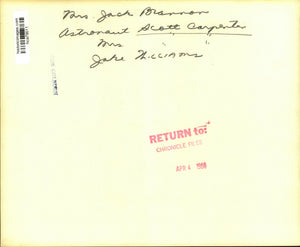 Mrs. Jack Brannon
Astronaut Scott Carpenter
Mrs " "
Jake Williams
RETURN to:
CHRONICLE FILES
APR 4